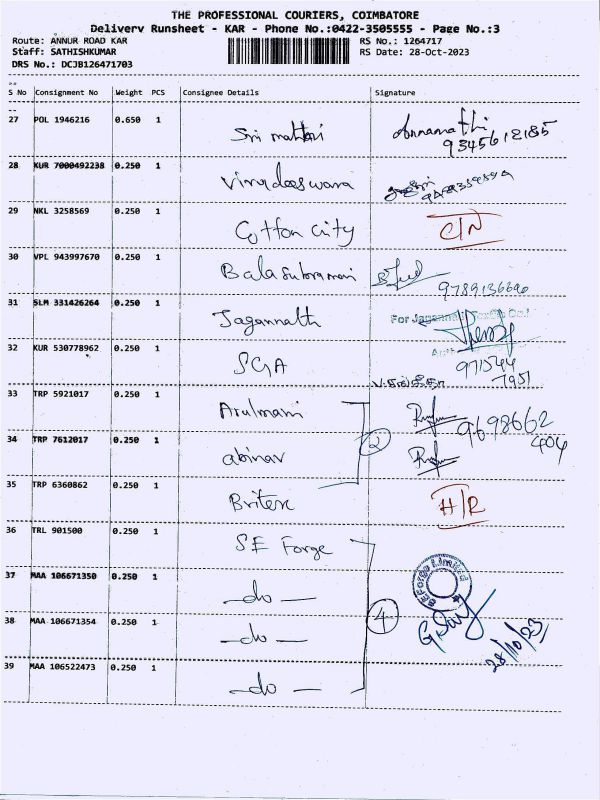 THE PROFESSIONAL COURIERS, COIMBATORE
Delivery Runsheet - KAR - Phone No.:0422-3505555 - Page No.:3
Route: ANNUR ROAD KAR
RS No.: 1264717
Staff: SATHISHKUMAR
RS Date: 28-Oct-2023
DRS No.: DCJB126471703
S No Consignment No Weight PCS Consignee Details Signature
27 POL 1946216 0.650 1 Sri 9345612185
28 KUR 7000492238 0.250 1
29 NKL 3258569 0.250 1 Cotton City C/N
30 VPL 943997670 0.250 1 Balasubramani 9789136696
31 SLM 331426264 0.250 1 Jagannath For
32 KUR 530778962 0.250 1 SGA 971544
7951
33 TRP 5921017 0.250 1 Arulmani 9698662
404
34 TRP 7612017 0.250 1 abinav 2
35 TRP 6360862 0.250 1 Briterc H/R
36 TRL 901500 0.250 1 SE Forge SEForge Limited
37 MAA 106671350 0.250 1 - do -
38 MAA 106671354 0.250 1 - do - 4 28/10/23
39 MAA 106522473 0.250 1 - do -